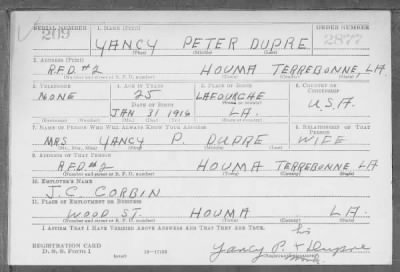 SERIAL NUMBER 1. NAME (Print) ORDER NUMBER
209 YANCY PETER DUPRE 2877
(First) (Middle) (Last)
2. ADDRESS (Print)
R.F.D. #2 HOUMA TERREBONNE, LA.
(Number and street or R. F. D. number) (Town) (County) (State)
3. TELEPHONE 4. AGE IN YEARS 5. PLACE OF BIRTH 6. COUNTRY OF CITIZENSHIP
NONE 25 LAFOURCHE
DATE OF BIRTH (Town or county) U.S.A.
JAN 31 1916 LA.
(Mo.) (Day) (Yr.) (State or country)
7. NAME OF PERSON WHO WILL ALWAYS KNOW YOUR ADDRESS 8. RELATIONSHIP OF THAT PERSON
MRS YANCY P. DUPRE WIFE
(Mr., Mrs., Miss) (First) (Middle) (Last)
9. ADDRESS OF THAT PERSON
R.F.D #2 HOUMA TERREBONNE LA
(Number and street or R. F. D. number) (Town) (County) (State)
10. EMPLOYER'S NAME
J.C. CORBIN
11. PLACE OF EMPLOYMENT OR BUSINESS
WOOD ST. HOUMA LA.
(Number and street or R. F. D. number) (Town) (County) (State)
I AFFIRM THAT I HAVE VERIFIED ABOVE ANSWERS AND THAT THEY ARE TRUE.
his
REGISTRATION CARD Yancy P. X Dupre
D. S. S. Form 1 16—17105 mark